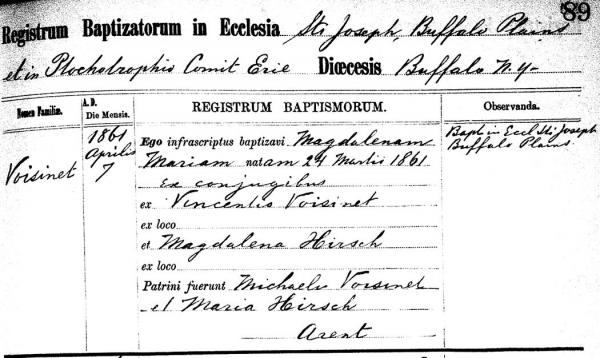 89
Registrum Baptizatorum in Ecclesia Sti Joseph, Buffalo Plains
et in Ptochotrophio Comit Erie Diœcesis Buffalo N.Y-
Nomen Familiæ.
A. D.
Die Mensis.
REGISTRUM BAPTISMORUM.
Observanda.
Voisinet
1861
Aprilis
7
Ego infrascriptus baptizavi Magdalenam
Mariam natam 24 Martis 1861
ex conjugibus
ex Vincentio Voisinet
ex loco
et Magdalena Hirsch
ex loco
Patrini fuerunt Michaele Voisinet
et Maria Hirsch
Arent
Bapt in Eccl Sti Joseph
Buffalo Plains.